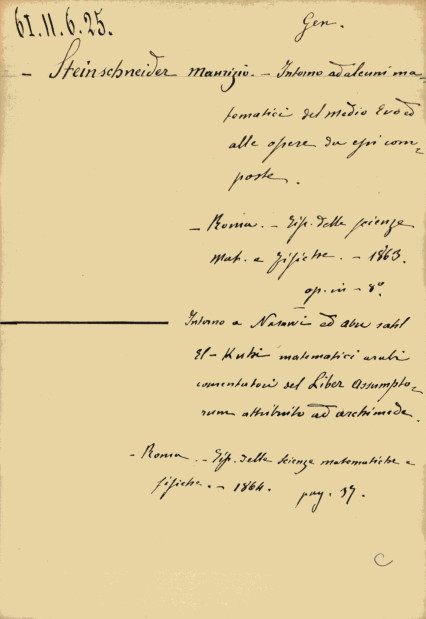 61.11.6.25.
Gen.
- Steinschneider Maurizio. - Intorno ad alcuni ma-
tematici del medio Evo ed
alle opere da essi com-
poste.
- Roma. - Tip. delle scienze
Mat. e Fisiche. - 1863.
op. in - 8°
Intorno a Nasawi ed abu sahl
El - Kuhi matematici arabi
comentatori del Liber Assumpto-
rum attribuito ad archimede.
- Roma. - Tip. delle scienze matematiche e
fisiche. - 1864. pag. 37.
C